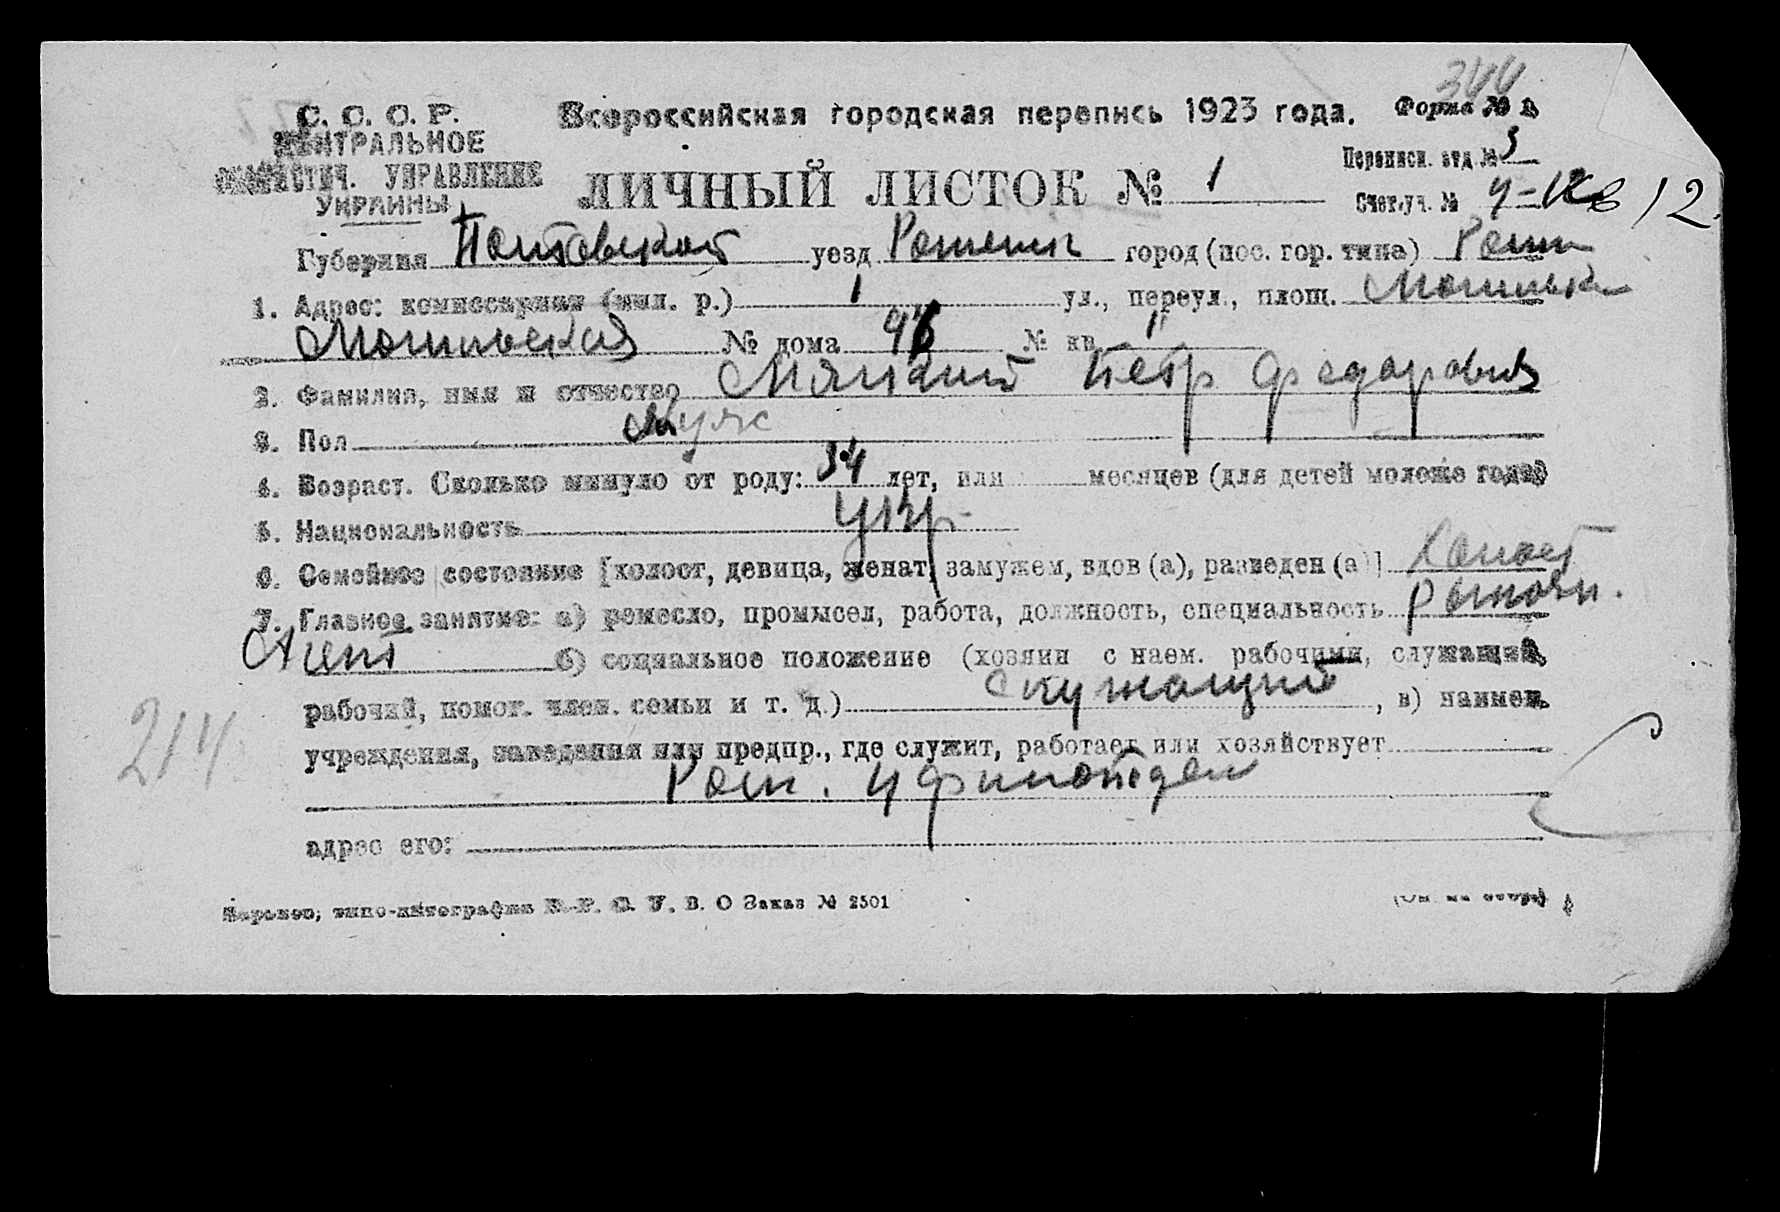 344
С. С. С. Р. Всероссийская городская перепись 1923 года. Форма № 1
ЦЕНТРАЛЬНОЕ
Переписн. отд. № 3
СТАТИСТИЧ. УПРАВЛЕНИЕ
УКРАИНЫ
ЛИЧНЫЙ ЛИСТОК № 1
Счетн.уч. № 12
Губерния Полтавской уезд Роменск город (пос. гор. типа) Ромн
1. Адрес: комиссариат (мил. р.) 1 ул., переул., площ.
№ дома № кв. 11
2. Фамилия, имя и отчество Петр Федорович
3. Пол Муж
4. Возраст. Сколько минуло от роду: 34 лет, или месяцев (для детей моложе года)
5. Национальность Укр.
6. Семейное состояние [холост, девица, женат, замужем, вдов (а), разведен (а)] Холост
7. Главное занятие: а) ремесло, промысел, работа, должность, специальность
Агент б) социальное положение (хозяин с наем. рабочими, служащий,
рабочий, помог. член. семьи и т. д.) Служащий, в) наимен.
214
учреждения, заведения или предпр., где служит, работает или хозяйствует
Ром.
адрес его:
типо-литография Заказ № 2501